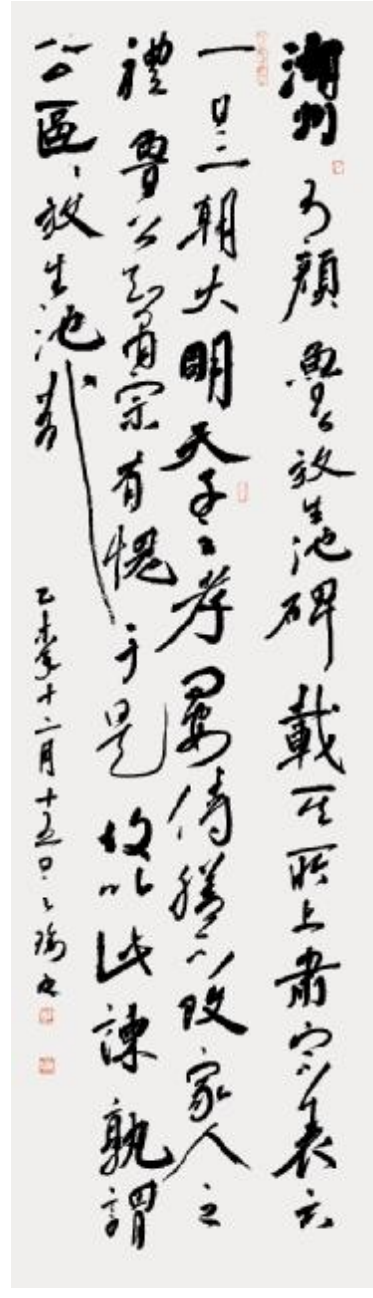 湖州有顏魯公放生池碑載其所上肅宗表云
一日三朝大明天子之孝問安侍膳不改家人之
禮魯公知肅宗有愧于是故以此諫孰謂
公區、放生池哉
乙未年十二月十五日